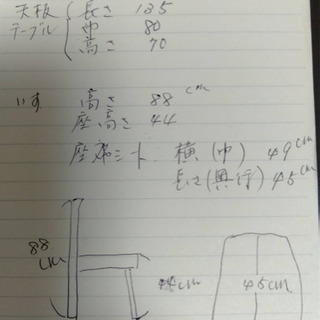 天板 長さ 135
テーブル 巾 80
高さ 70
いす 高さ 88 cm
座高さ 44
座席シート 横(巾) 49cm
長さ(奥行) 45cm
88 cm
44cm
45cm